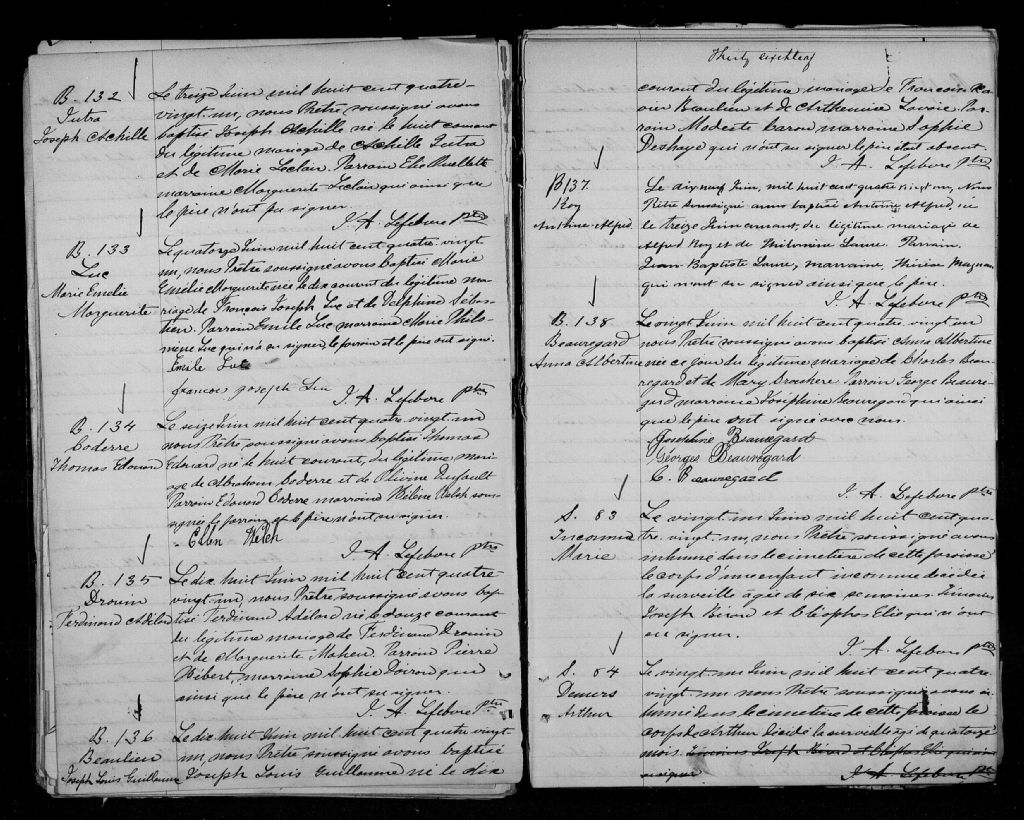 B. 132
Jutra
Joseph Achille
Le treize Juin mil huit cent quatre-
vingt-un, nous Prêtre soussigné avons
baptisé Joseph Achille né le huit courant
du légitime mariage de Achille Jutra
et de Marie Leclair. Parrain Elie Ouellette
marraine Marguerite Leclair qui ainsi que
le père n'ont pu signer.
J. A. Lefebvre ptre
B. 133
Luc
Marie Emélie
Marguerite
Le quatorze Juin mil huit cent quatre-vingt
un, nous Prêtre soussigné avons baptisé Marie
Emélie Marguerite née le dix courant du légitime ma-
riage de François Joseph Luc et de Delphine
Parrain Emile Luc marraine Marie Philo-
mène Luc qui n'a su signer, le parrain et le père ont signé.
Emile Luc
francois joseph Luc
J. A. Lefebvre ptre
B. 134
Coderre
Thomas Edouard
Le seize Juin mil huit cent quatre vingt-un
nous Prêtre soussigné avons baptisé Thomas
Edouard né le huit courant, du légitime mari-
age de Abraham Coderre et de Olivine Dufault
Parrain Edouard Coderre marraine Hélène Welch sous-
signée le parrain et le père n'ont su signer.
Ellen Welch
J. A. Lefebvre ptre
B. 135
Drouin
Ferdinand Adélard
Le dix huit Juin mil huit cent quatre
vingt-un, nous Prêtre soussigné avons bap-
tisé Ferdinand Adélard né le douze courant
du légitime mariage de Ferdinand Drouin
et de Marguerite Maheu. Parrain Pierre
Hébert, marraine Sophie Doiron qui
ainsi que le père n'ont su signer.
J. A. Lefebvre ptre
B. 136
Beaulieu
Joseph Louis Guillaume
Le dix huit Juin mil huit cent quatre vingt
un, nous Prêtre soussigné avons baptisé
Joseph Louis Guillaume né le dix
Thirty sixth leaf
courant du légitime mariage de François Xa-
vier Beaulieu et de Arthemise Lavoie. Par-
rain Modeste Caron marraine Sophie
Deshaye qui n'ont su signer le père était absent.
J. A. Lefebvre ptre
B 137
Roy
Antoine Alfred
Le dix neuf Juin, mil huit cent quatre vingt un, Nous
Prêtre soussigné avons baptisé Antoine Alfred, né
le treize Juin courant, du légitime mariage de
Alfred Roy et de Philomène Parrain
Jean-Baptiste marraine
qui n'ont su signer ainsi que le père.
J. A. Lefebvre ptre
B. 138
Beauregard
Anna Albertine
Le vingt Juin mil huit cent quatre-vingt un
nous Prêtre soussigné avons baptisé Anna Albertine
née ce jour du légitime mariage de Charles Beau-
regard et de Mary Parrain George Beaure-
gard marraine Joséphine Beauregard qui ainsi
que le père ont signé avec nous.
Josephine Beauregard
Georges Beauregard
C. Beauregard
J. A. Lefebvre ptre
S. 83
Inconnu
Marie
Le vingt-un Juin mil huit cent qua-
tre-vingt-un, nous Prêtre soussigné avons
inhumé dans le cimetière de cette paroisse
le corps d'une enfant inconnue décédée
la surveille agée de six semaines. Témoins
Joseph et Cléophas Elie qui n'ont
su signer.
J. A. Lefebvre ptre
S. 84
Demers
Arthur
Le vingt-un Juin mil huit cent quatre
vingt-un nous Prêtre soussigné avons in-
humé dans le cimetière de cette paroisse le
corps de Arthur décédé la surveille agé de quatorze
mois. Témoins Joseph et Cléophas Elie qui n'ont
su signer
J. A. Lefebvre Ptre